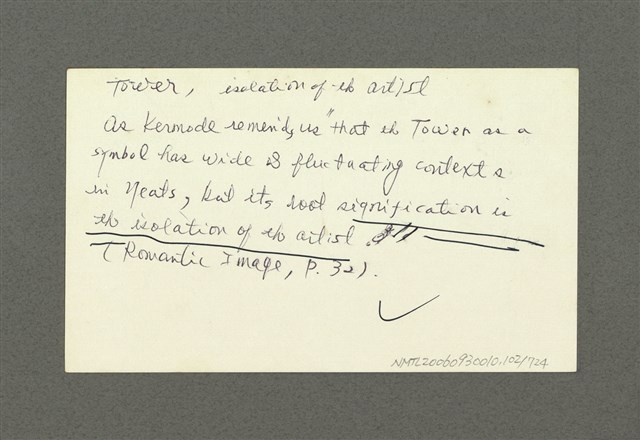 Tower, isolation of th artist
As Kermode reminds us "that th Tower as a
symbol has wide & fluctuating contexts
in Yeats, but its root signification is
th isolation of th artist
(Romantic Image, p. 32).
NMTL20060930010.102/724